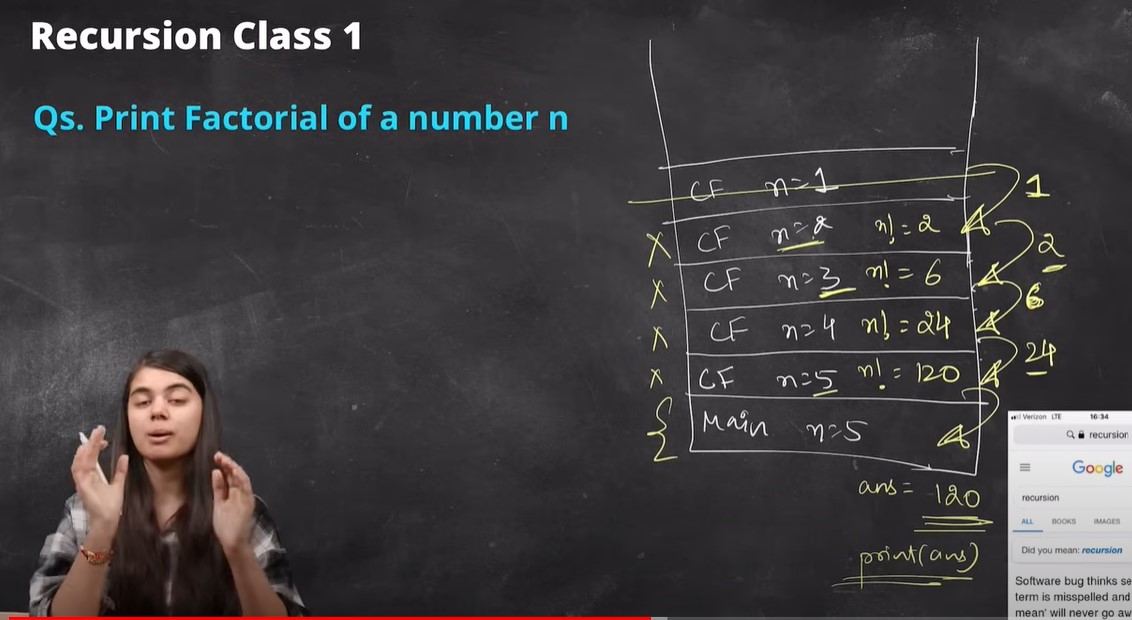 Recursion Class 1
Qs. Print Factorial of a number n
CF n=1
1
CF n=2 n!=2
2
CF n=3 n!=6
6
CF n=4 n!=24
24
CF n=5 n!=120
Main n=5
ans= 120
print(ans)
Verizon LTE 16:34
recursion
Google
recursion
ALL BOOKS IMAGES
Did you mean: recursion
Software bug thinks se
term is misspelled and
mean' will never go aw